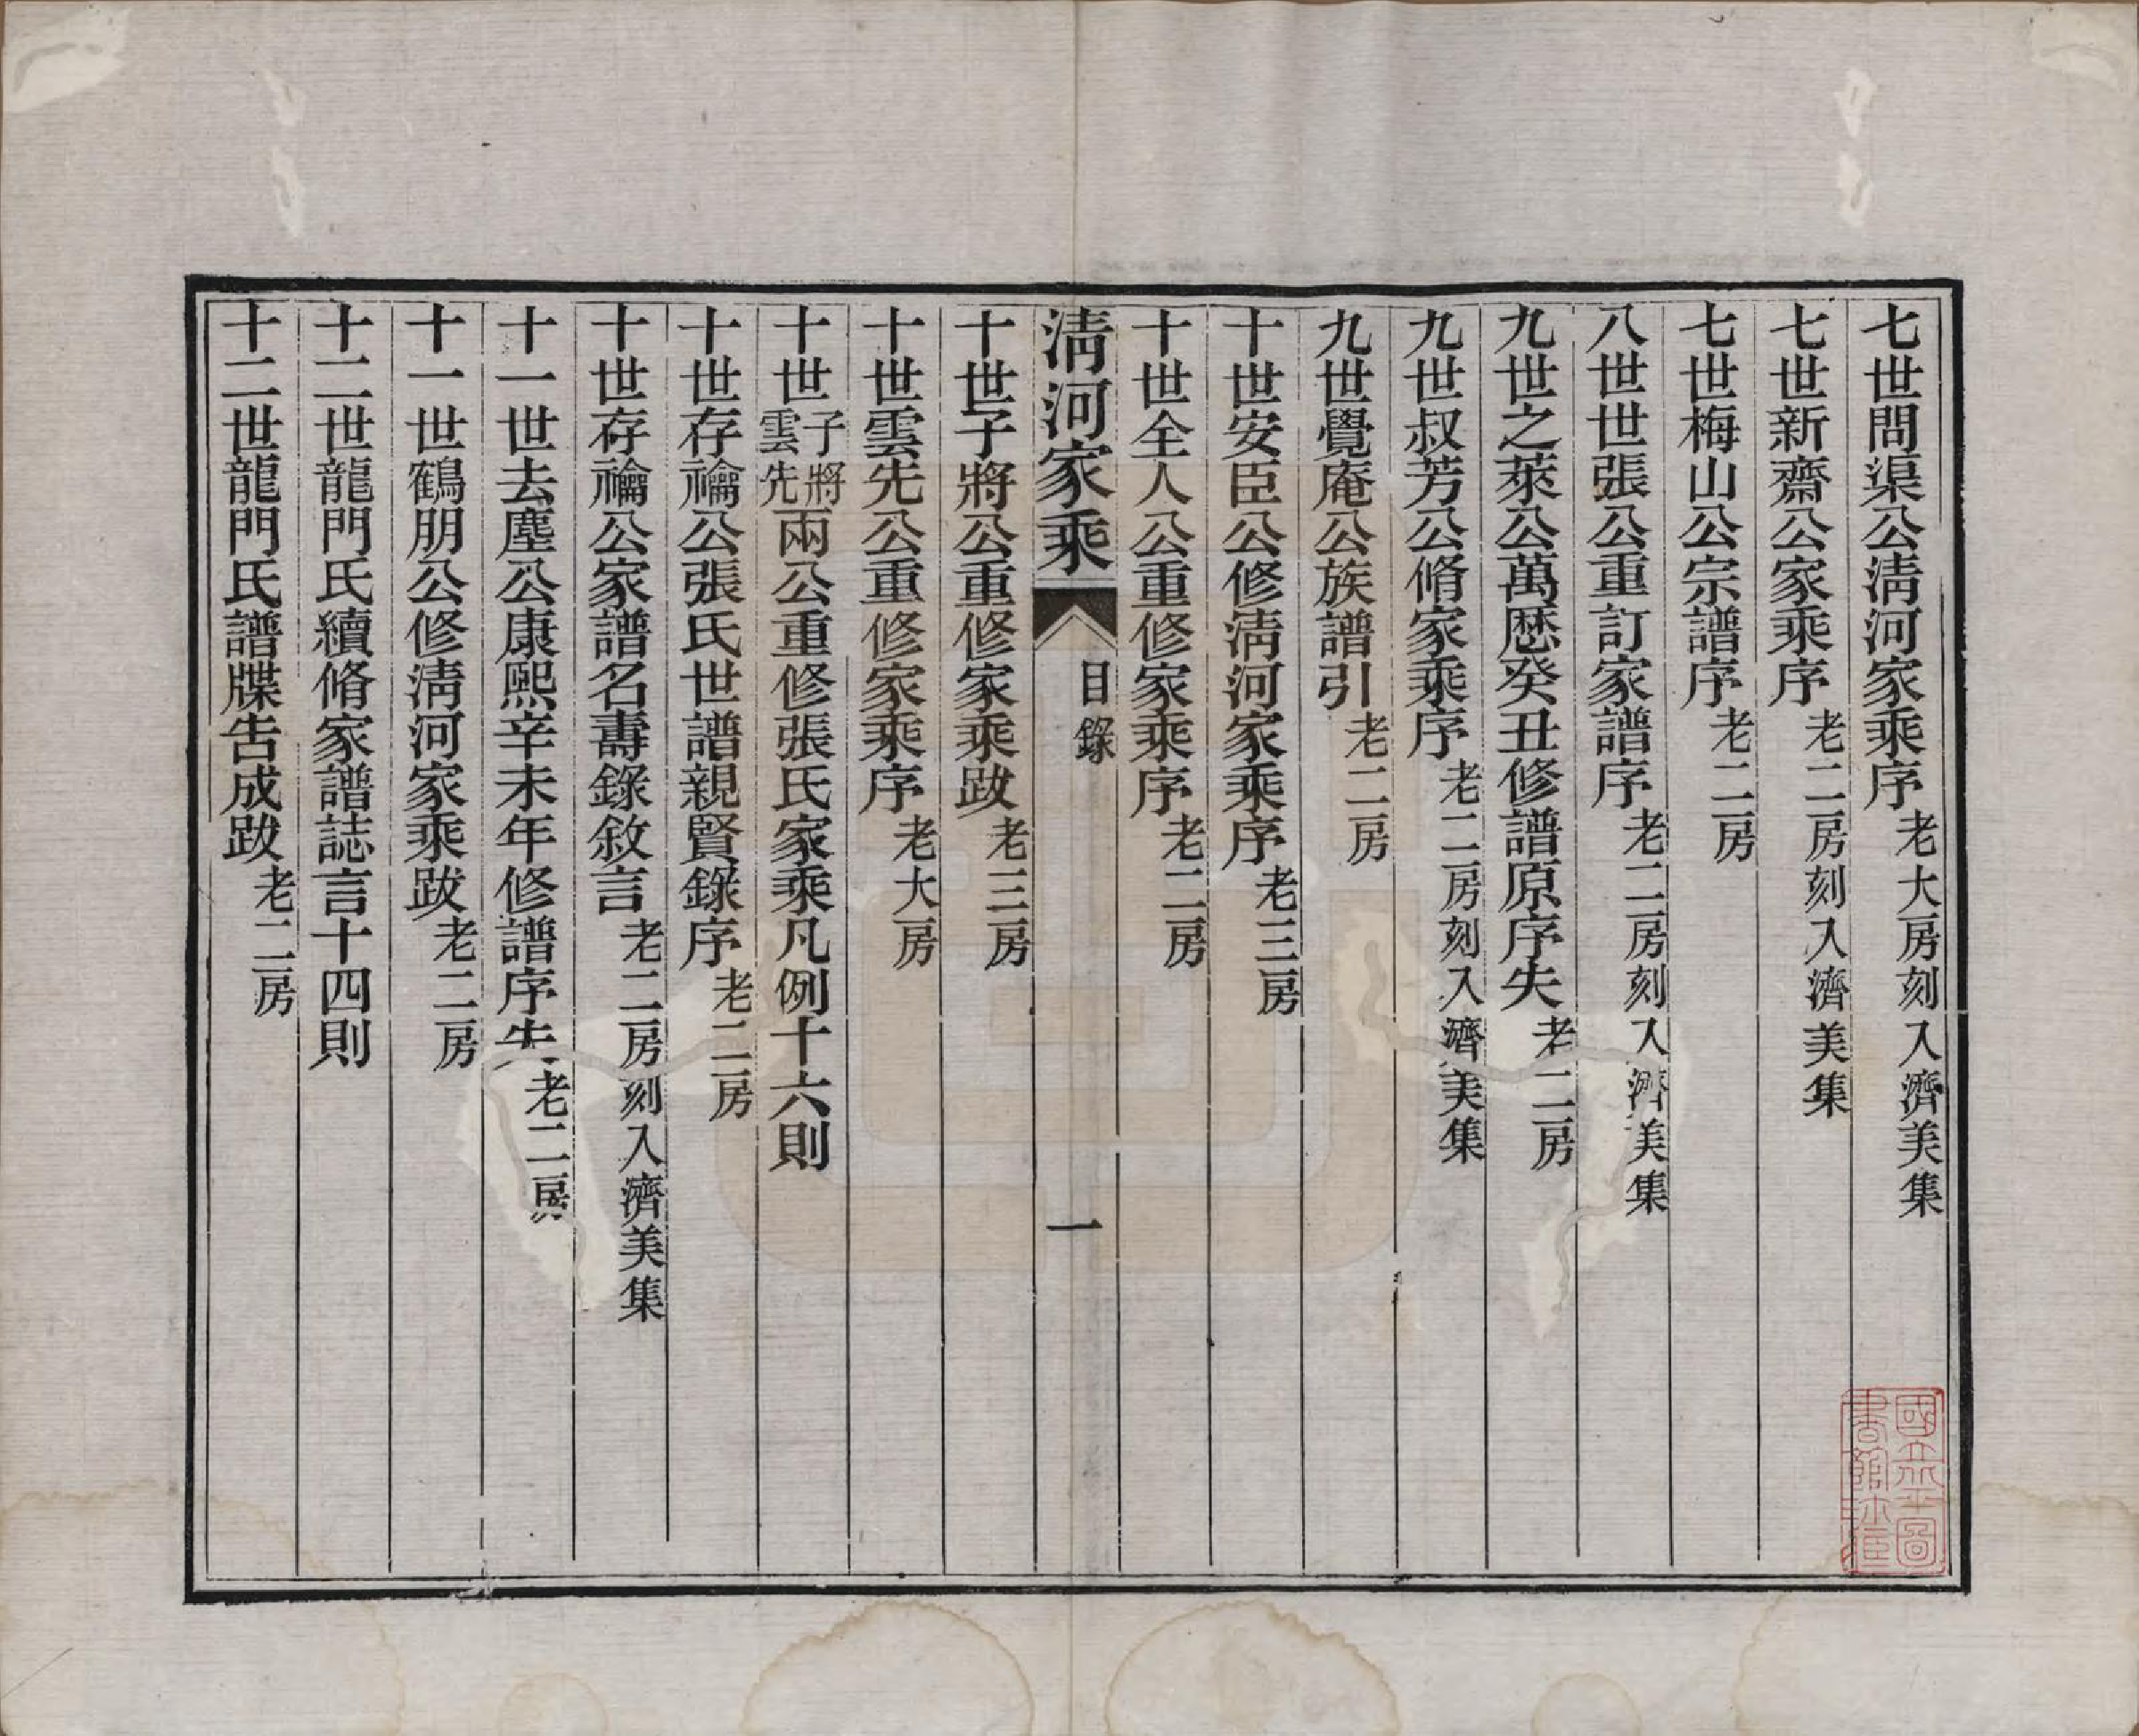 七世問渠公淸河家乘序老大房刻入濟美集
七世新齋公家乘序老二房刻入濟美集
七世梅山公宗譜序老二房
八世世張公重訂家譜序老二房刻入濟美集
九世之萊公萬歷癸丑修譜原序失老二房
九世叔芳公脩家乘序老二房刻入濟美集
九世覺庵公族譜引老二房
十世安臣公修淸河家乘序老三房
十世全人公重修家乘序老二房
淸河家乘
目錄
一
十世子將公重修家乘跋老三房
十世雲先公重修家乘序老大房
十世子將雲先兩公重修張氏家乘凡例十六則
十世存禴公張氏世譜親賢錄序老二房
十世存禴公家譜名壽錄敘言老二房刻入濟美集
十一世去塵公康熙辛未年修譜序失老二房
十一世鶴朋公修淸河家乘跋老二房
十二世龍門氏續脩家譜誌言十四則
十二世龍門氏譜牒告成跋老二房